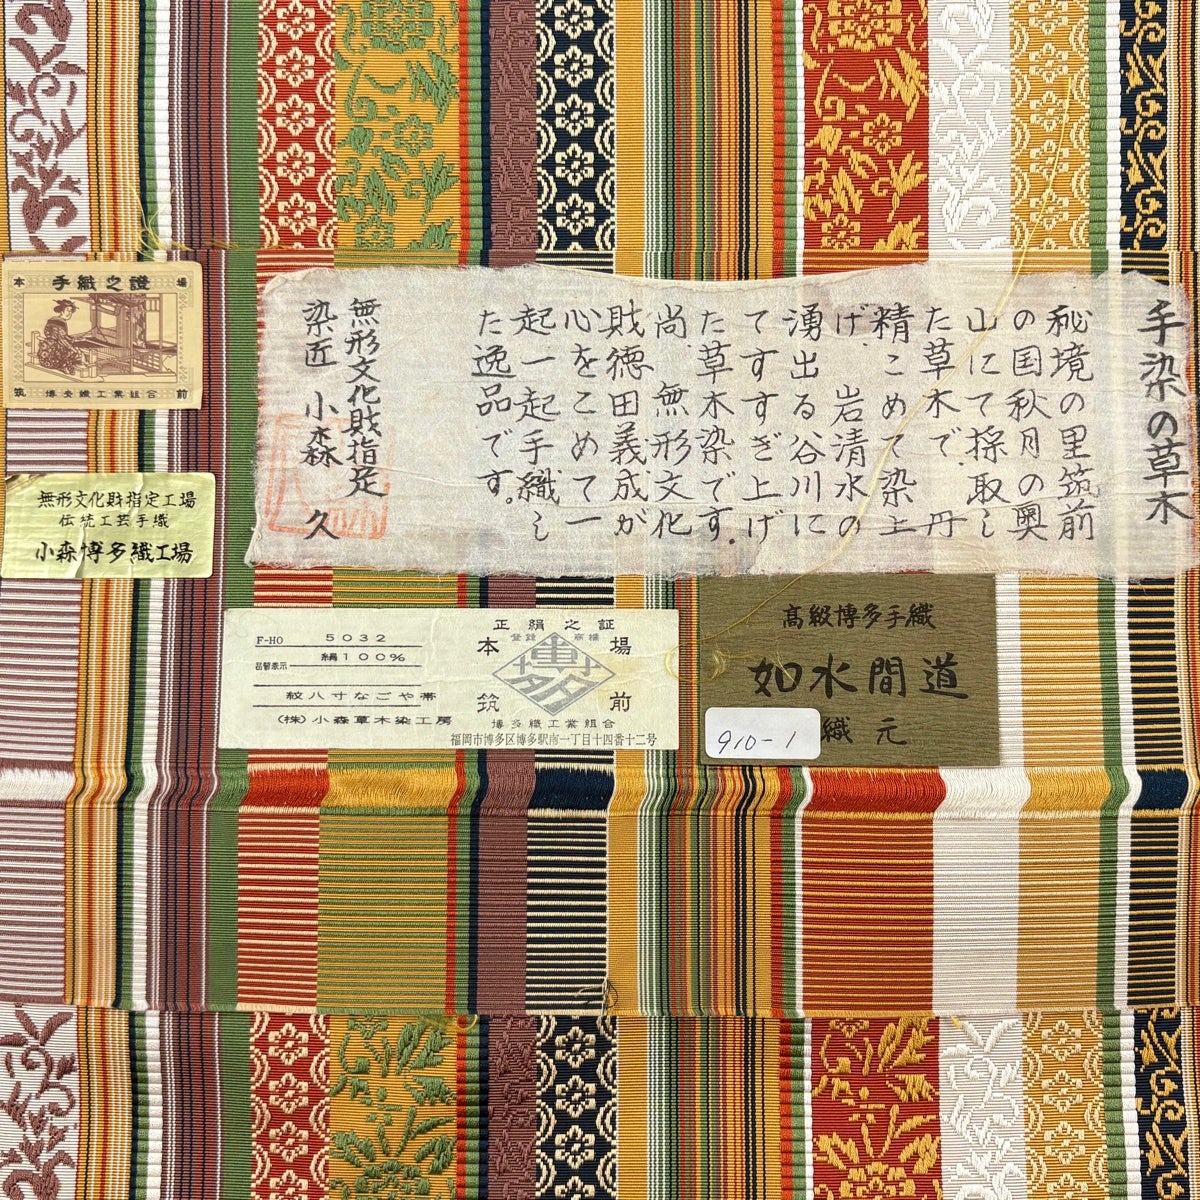 手染の草木
秘境の里筑前
の国秋月の奥
山にて採取し
た草木で、丹
精こめて染上
げ、岩清水の
湧出る谷川に
てすすぎ上げ
た草木染です。
尚、無形文化
財徳田義成が
心をこめて一
起一起手織し
た逸品です。
無形文化財指定
染匠 小森 久
本 手織之證 場
筑 博多織工業組合 前
無形文化財指定工場
伝統工芸手織
小森博多織工場
正絹之証
登録 商標
本 場
筑 前
博多織工業組合
福岡市博多区博多駅南一丁目十四番十二号
F-HO 5032
絹100%
品質表示
紋八寸なごや帯
(株)小森草木染工房
高級博多手織
如水間道
織元
910-1